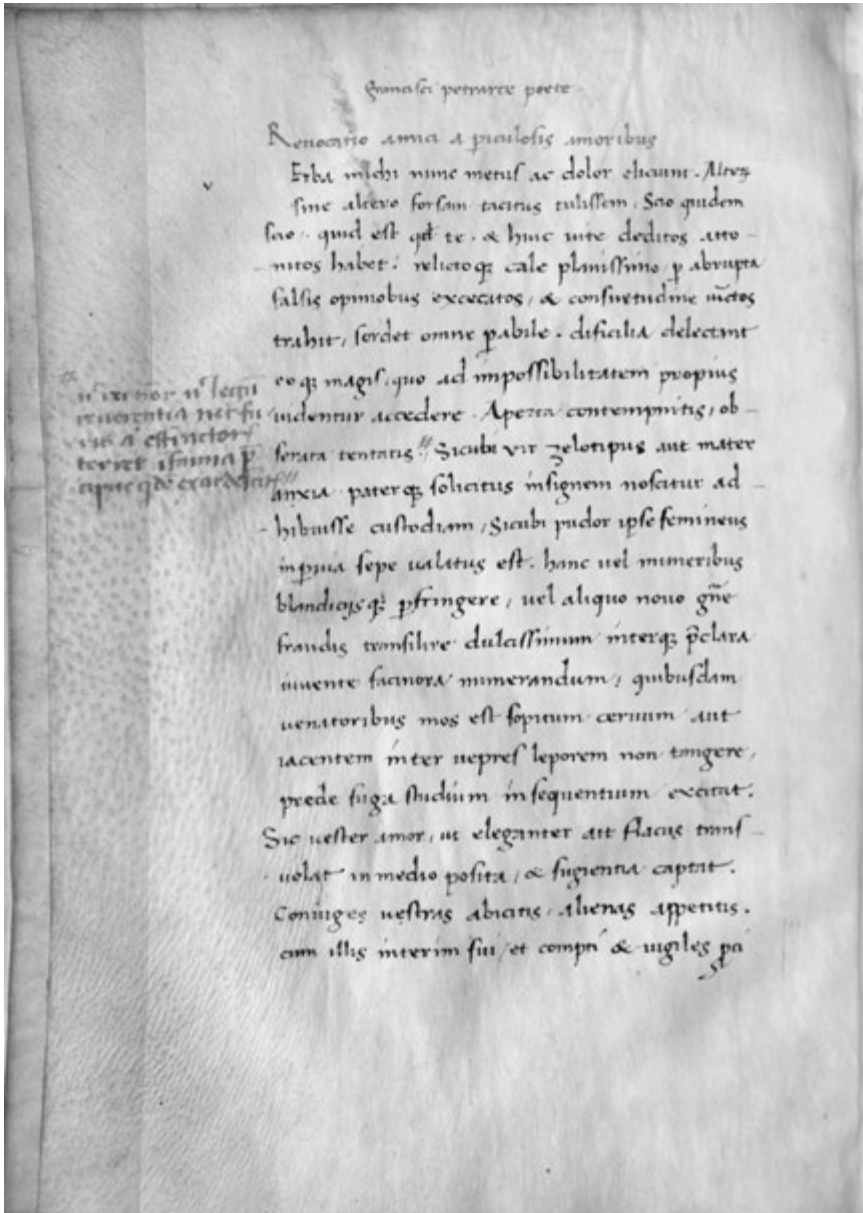 Francisci petrarce poete
Reuocatio amici a ꝑiculosis amoribus
v
Erba michi nunc metus ac dolor eliciunt. Alterꝫ
sine altero forsam tacitus tulissem. Scio quidem
scio. quid est qđ te. & huic uite deditos atto-
nitos habet. relictoqꝫ calle planissimo ꝑ abrupta
falsis opiniobus excecatos, & consuetudine
trahit, sordet omne ꝑabile. dificilia delectant
eoqꝫ magis, quo ad impossibilitatem propius
uidentur accedere. Aperta contempnitis, ob-
serata tentatis. Sicubi vir zelotipus aut mater
anxia paterqꝫ solicitus insignem noscitur ad-
hibuisse custodiam, Sicubi pudor ipse femineus
sepe ualatus est. hanc uel muneribus
blandicijsqꝫ ꝑfringere, vel aliquo nouo gn̄e
fraudis transilire dulcissimum interqꝫ p̄clara
iuuente facinora numerandum, quibusdam
uenatoribus mos est sopitum ceruum aut
iacentem inter uepres leporem non tangere,
prede fuga studium insequentium excitat.
Sic uester amor, ut eleganter ait flacus trans-
uolat in medio posita, & fugientia captat.
Coniuges uestras abicitis, alienas appetitis.
cum illis interim sui, et compti & uigiles ꝑci